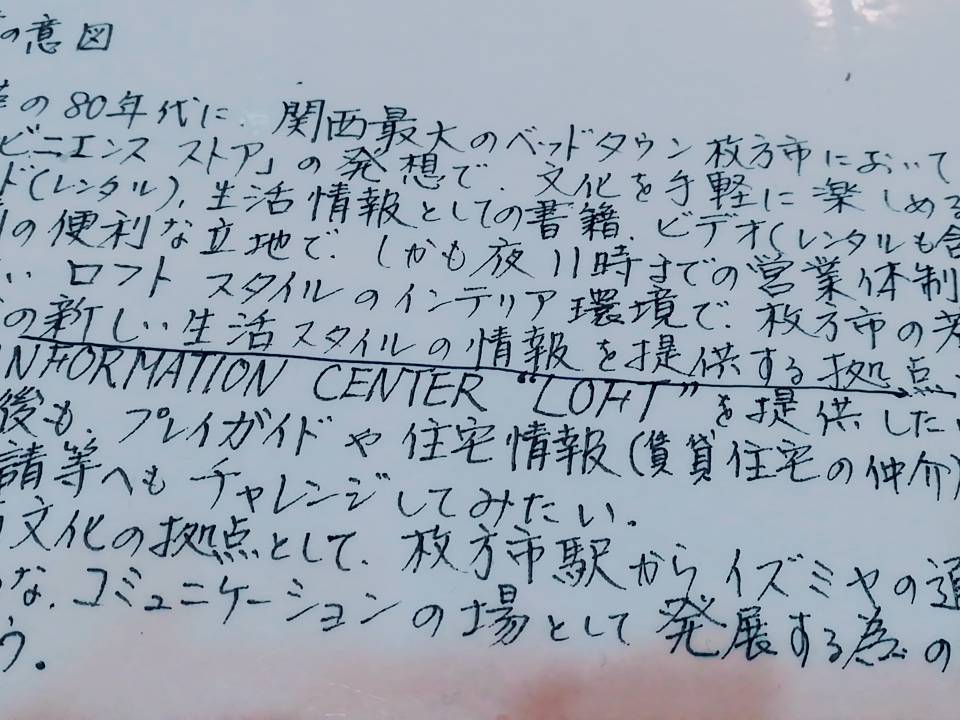 の意図
の80年代に、関西最大のベッドタウン枚方市において
ビニエンス ストア」の発想で、文化を手軽に楽しめる
ド(レンタル)、生活情報としての書籍、ビデオ(レンタルも含
の便利な立地で、しかも夜11時までの営業体制
い ロフト スタイルのインテリア環境で、枚方市の若
の新しい生活スタイルの情報を提供する拠点
INFORMATION CENTER “LOFT”を提供したい
後も、プレイガイドや住宅情報(賃貸住宅の仲介)
請等へもチャレンジしてみたい。
文化の拠点として、枚方市駅からイズミヤの通
な、コミュニケーションの場として発展する為の
う。